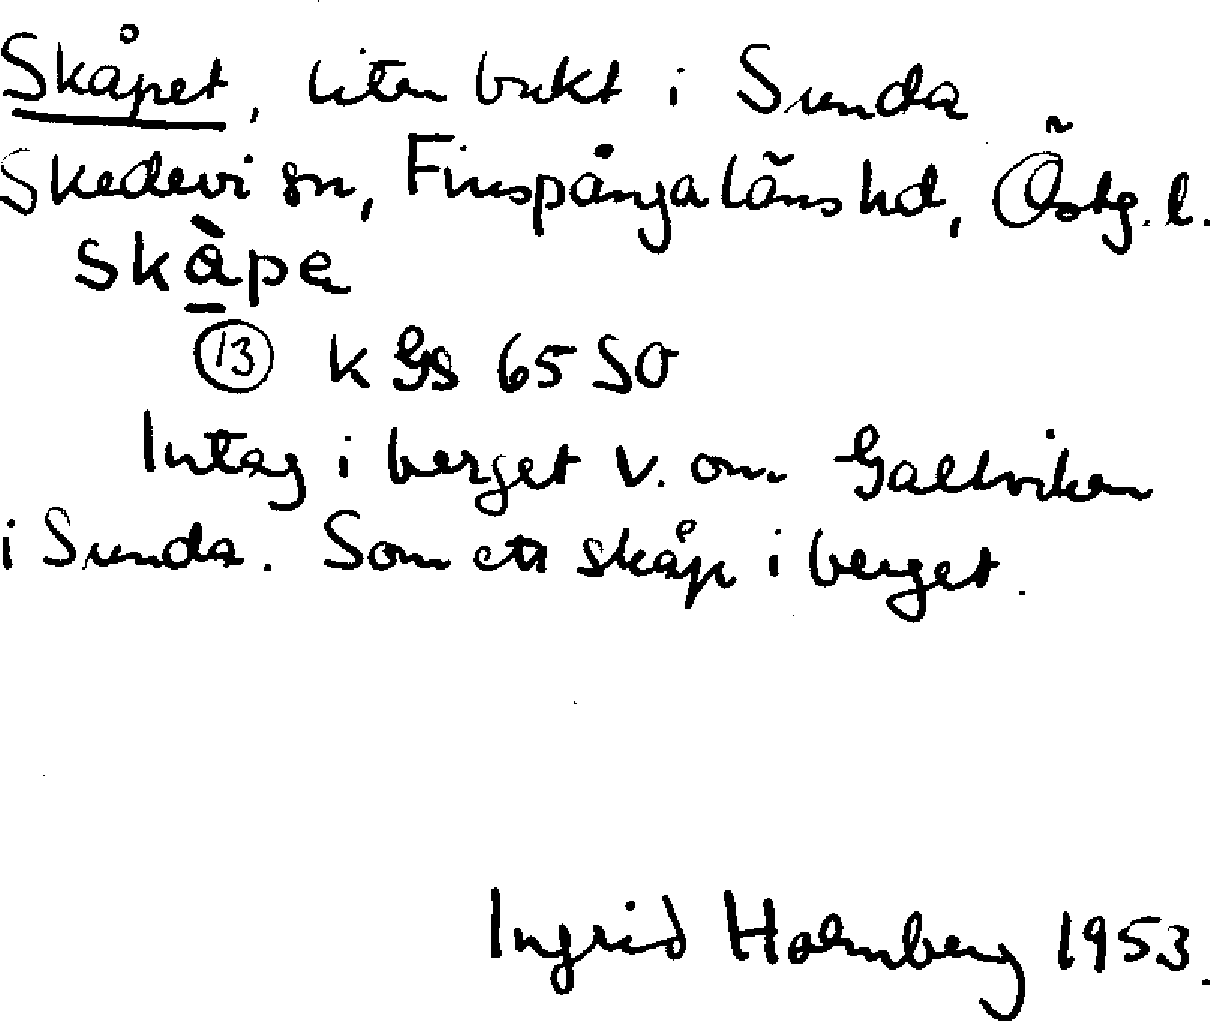 Skåpet, liten bukt i Sunda
Skedevi sn, Finspångaläns hd, Östg. l.
skàpe
13 k Gs 65 SO
Intag i berget v. om Galtviken
i Sunda. Som ett skåp i berget.
Ingrid Holmberg 1953.